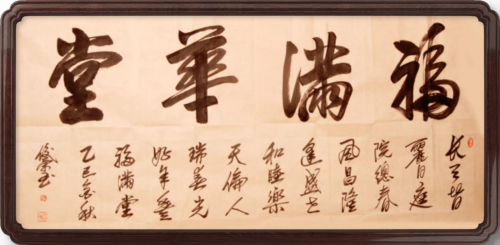 福滿華堂
长天皆
麗日庭
院總春
風昌隆
逢盛世
和睦樂
天倫人
瑞春光
好年豐
福滿堂
乙巳金秋